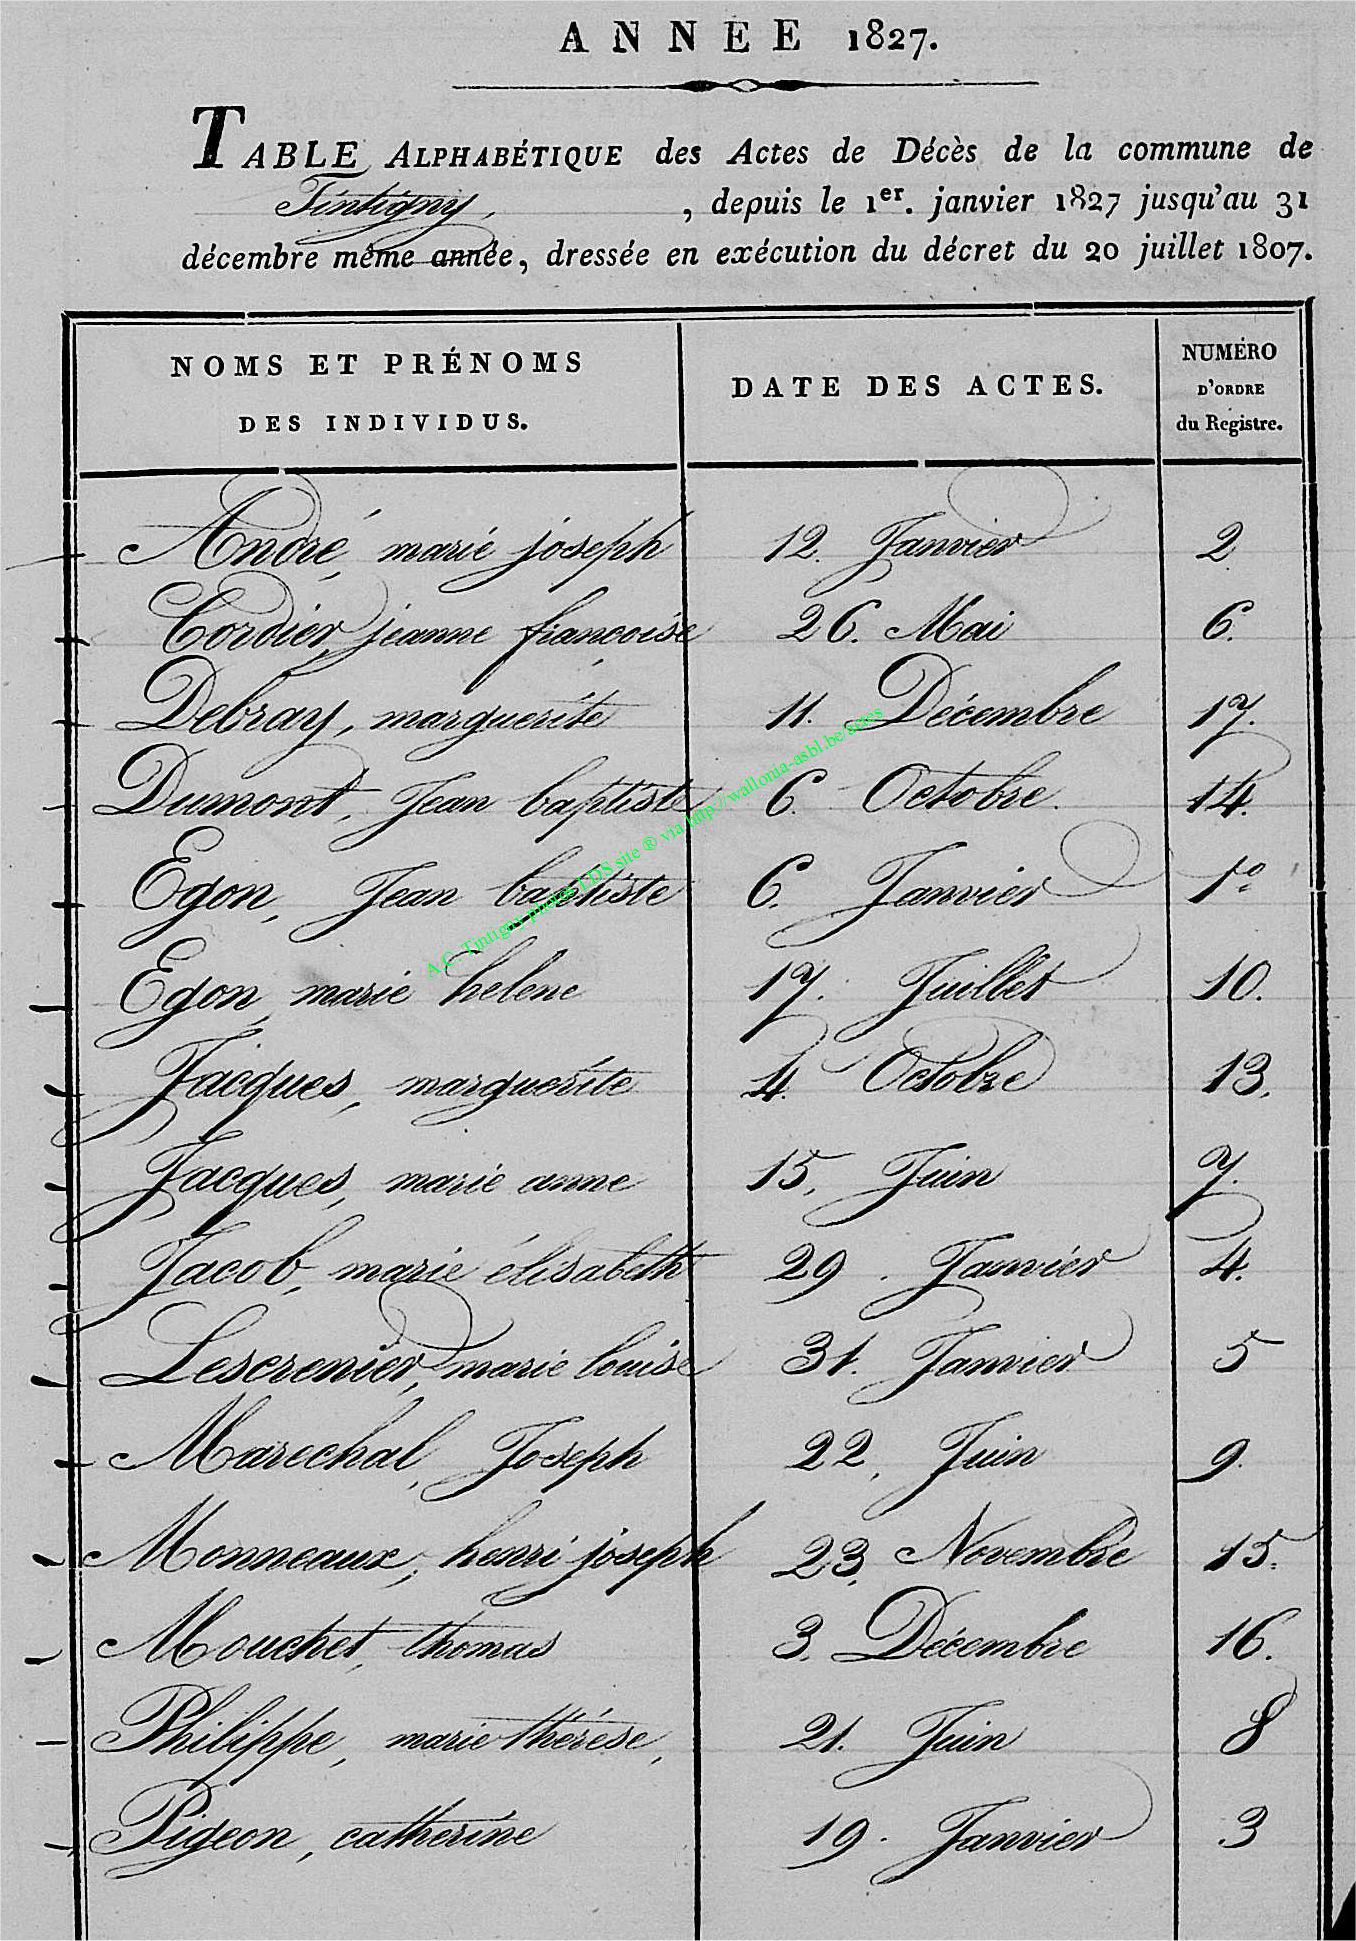 ANNEE 1827.
TABLE ALPHABÉTIQUE des Actes de Décès de la commune de
Tintigny, , depuis le 1er. janvier 1827 jusqu'au 31
décembre même année, dressée en exécution du décret du 20 juillet 1807.
NOMS ET PRÉNOMS DES INDIVIDUS. DATE DES ACTES. NUMÉRO D'ORDRE du Registre.
André, marie joseph 12. Janvier 2
Cordier, jeanne françoise 26. Mai 6.
Debray, marguerite 11. Décembre 17.
Dumont, Jean baptiste 6. Octobre. 14.
Egon, Jean baptiste 6. Janvier 1º
Egon, marie helene 17. Juillet 10.
Jacques, marguerite 4. Octobre 13.
Jacques, marie anne 15. Juin 7.
Jacob, marie élisabeth 29. Janvier 4.
Lescrenier, marie louise 31. Janvier 5
Marechal, Joseph 22. Juin 9.
Monneaux, henri joseph 23. Novembre 15.
Mouchet, thomas 3. Décembre 16.
Philippe, marie thérèse, 21. Juin 8
Pigeon, catherine 19. Janvier 3
A.C. Tintigny photos LDS site ® via http://wallonia-asbl.be/actes